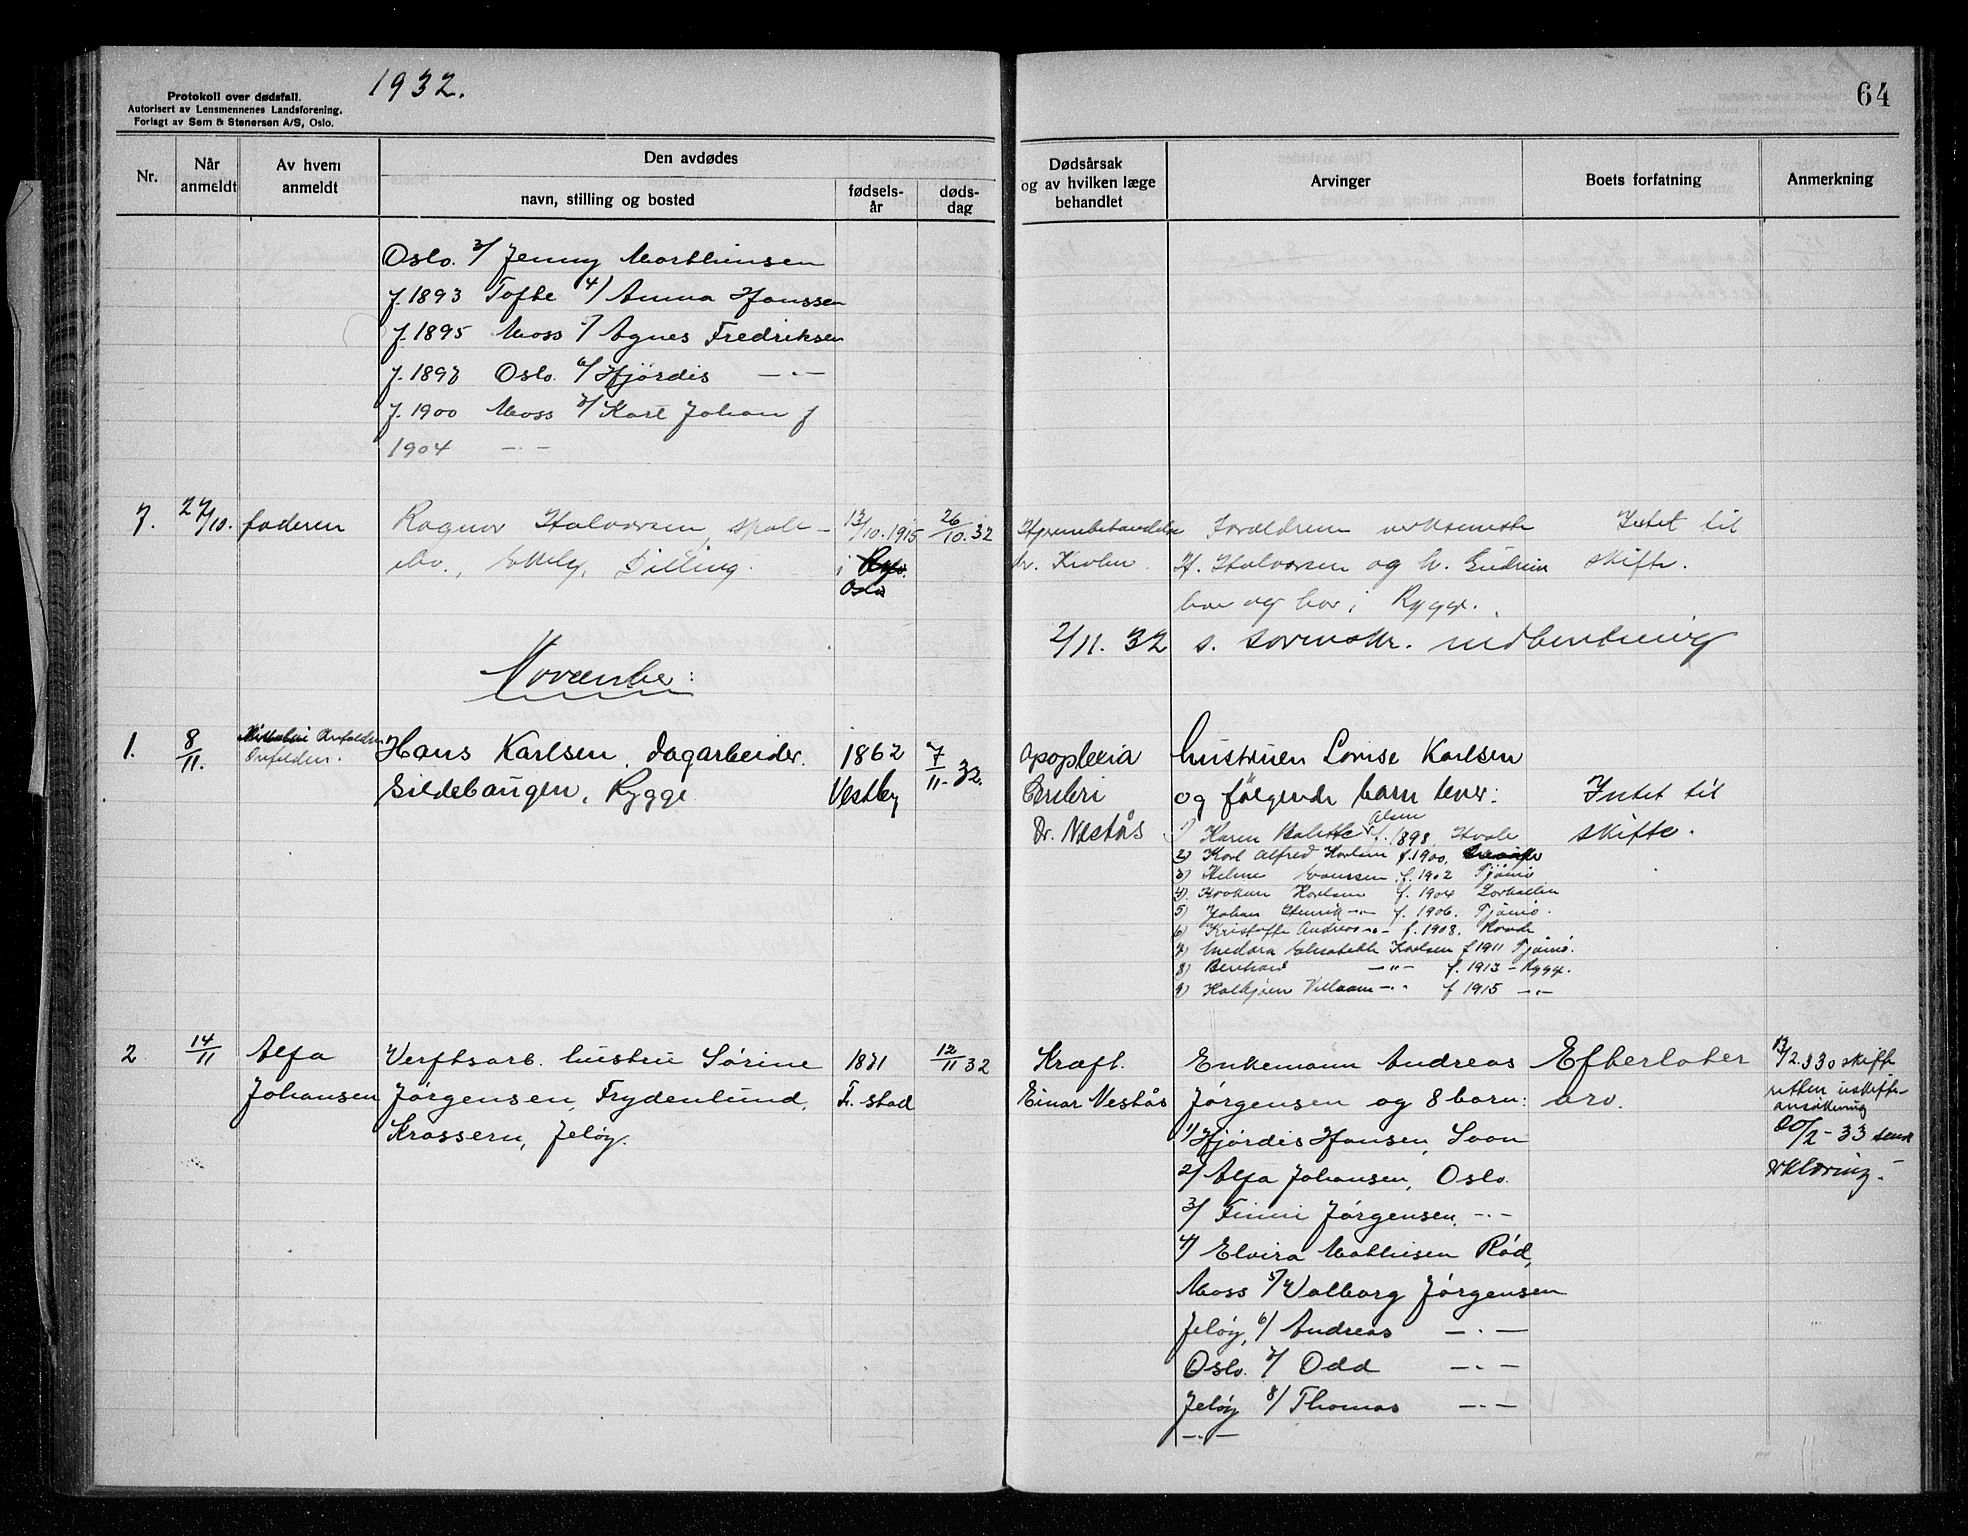 1932.
64
Protokoll over dødsfall.
Autorisert av Lensmennenes Landsforening.
Forlagt av Sem & Stenersen A/S, Oslo.
Nr.
Når anmeldt
Av hvem anmeldt
Den avdødes
navn, stilling og bosted
fødsels-år
døds-dag
Dødsårsak og av hvilken læge behandlet
Arvinger
Boets forfatning
Anmerkning
Oslo. 3/ Jenny Marthinsen
f. 1893 Tofte 4/ Anna Hanssen
f. 1895 Moss 5/ Agnes Fredriksen
f. 1897 Oslo. 6/ Hjørdis —"—
f. 1900 Moss 7/ Karl Johan f
1904 —"—
7. 27/10. faderen
Ragnar Halvorsen,
Dilling.
13/10. 1915
i
Oslo
26/10. 32
dr.
Foreldrene
H. Halvorsen og h. Gudrun
bor i Rygge.
Intet til
skifte.
2/11. 32 s. sorenskr. indberetning
November:
1. 8/11.
Hans Karlsen, dagarbeider.
Sildebaugen, Rygge.
1862
Vestby
7/11. 32.
apoplexia
Cerebri
Dr. Nestås
hustruen Lovise Karlsen
og følgende barn lever:
1) Karen Bolette Olsen f. 1898, Hvale
2) Karl Alfred Karlsen f. 1900.
3) Helene f. 1902 Tjømø
4) Haakon Karlsen f. 1904
5) Johan Henrik —"— f. 1906. Tjømø.
6) Kristoffe Andreas —"— f. 1908. Raade
7) Elisabeth Karlsen f 1911 Tjømø.
8) Bernhard —"— f. 1913 - Rygge.
9) —"— f 1915 —"—
Intet til
skifte.
2. 14/11
Alfa
Johansen
Verftsarb. hustru Sørine
Jørgensen, Frydenlund,
Krossern, Jeløy.
1871
F. stad
12/11 32
Kræft.
Einar Nestås
Enkemann Andreas
Jørgensen og 8 barn:
1/ Hjørdis Hansen, Soon
2/ Alfa Johansen, Oslo.
3/ Finni Jørgensen, —"—
4/ Elvira Mathisen Rød,
Moss 5/ Valborg Jørgensen
Jeløy, 6/ Andreas —"—
Oslo. 7/ Odd —"—
Jeløy 8/ Thomas —"—
—"—
Efterlater
arv.
skifte
retten uskifte-
ansøkning
20/2 - 33 send
erklæring.